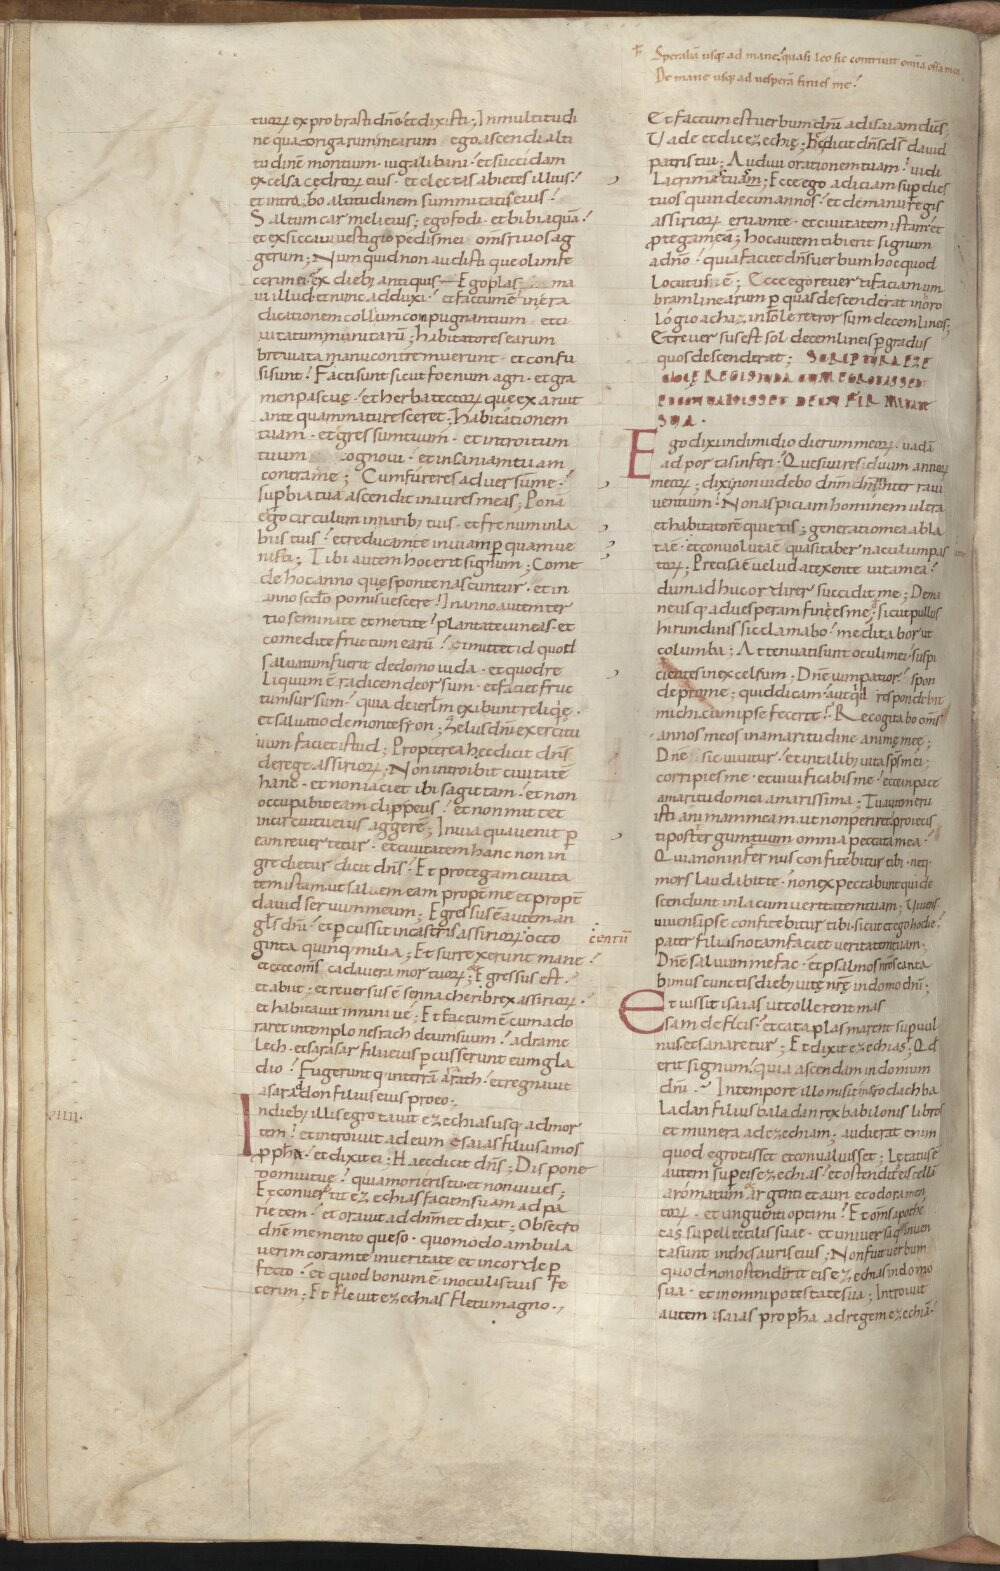 Sperabā usq; ad mane quasi leo sic contriuit omīa ossa mea,
De mane usq; ad uesperā finies me.
tuorꝝ exprobrasti dnō et dixisti; In multitudi
ne quadrigarum mearum ego ascendi alti
tudinē montium · iuga libani · et succidam
excelsa cędrorꝝ eius · et electas abietes illius.
et introibo altitudinem summitatis eius.
Saltum carmeli eius; ego fodi · et bibi aquā.
et exsiccaui uestigio pedis mei oms̄ riuos ag
gerum; Numquid non audisti que olim fe
cerim ei. ex dieb; antiquis Ego plas ma
ui illud et nunc adduxi. et factum ē in era
dicationem collium conpugnantium et ci
uitatum munitarū; habitatores earum
breuiata manu contremuerunt · et confu
si sunt. Facti sunt sicut foenum agri · et gra
men pascuę · et herba tectorꝝ que exaruit
antequam maturesceret; Habitationem
tuam · et gressum tuum · et introitum
tuum cognoui · et insaniam tuam
contra me; Cum fureres aduersum me.
supbia tua ascendit in aures meas; Ponā
ego circulum in narib; tuis · et frenum in la
biis tuis. et reducam te in uiam p quam ue
nisti; Tibi autem hoc erit signum; Come
de hoc anno quę sponte nascuntur · et in
anno scdo pomis uescere. In anno autem ter
tio seminate et metite. plantate uineas · et
comedite fructum earū. Et mittet id quod
saluatum fuerit de domo iuda · et quod re
liquum ē radicem deorsum · et faciet fruc
tum sursum · quia de ierlm̄ exibunt reliqię ·
et saluatio de monte syon; Zelus dnī exercitu
uum faciet istud; Propterea hec dicit dns̄
de rege assiriorꝝ; Non introibit ciuitatē
hanc · et non iaciet ibi sagittam. et non
occupabit eam clippeus. et non mittet
in circuitu eius aggerē; In uia qua uenit p
eam reuertetur · et ciuitatem hanc non in
gredietur dicit dns̄. Et protegam ciuita
tem istam ut saluem eam propt̄ me et propt̄
dauid seruum meum; Egressus ē autem an
gls̄ dnī. et pcussit in castris assiriorꝝ octo
centū
ginta quinq; milia; Et surrexerunt mane.
et ecce oms̄ cadauera mortuorꝝ. Egressus est.
et abiit; et reuersus ē sennacherib rex assiriorꝝ.
et habitauit in niniue; Et factum ē cum ado
raret in templo nesrach deum suum. adrame
lech · et sarasar filii eius pcusserunt eum gla
dio. Fugeruntq; in terrā ararath. et regnauit
asaraddon filius eius pro eo;
viiii.
In dieb; illis egrotauit ezechias usq; ad mor
tem. et introiuit ad eum esaias filius amos
ppha · et dixit ei; Haec dicit dns̄; Dispone
domui tuę. quia morieris tu et non uiues;
Et conuertit ezechias faciem suam ad pa
rietem. et orauit ad dnm̄ et dixit; Obsecro
dnē memento queso · quomodo ambula
uerim coram te in ueritate et in corde p
fecto. et quod bonum ē in oculis tuis fe
cerim; Et fleuit ezechias fletu magno ·,
Et factum est uerbum dnī ad isaiam dic̄s;
Uade et dic ezechię; Hęc dicit dns̄ ds̄ dauid
patris tui; Audiui orationem tuam. uidi
lacrimas tuas; Ecce ego adiciam sup dies
tuos quindecim annos. et de manu regis
assiriorꝝ eruam te · et ciuitatem istam et
ptegam ea; hoc autem tibi erit signum
a dnō. quia faciet dns̄ uerbum hoc quod
locutus ē; Ecce ego reuerti faciam um
bram linearum p quas descenderat in oro
logio achaz in sole retrorsum decem lineis;
Et reuersus est sol decem lineis p gradus
quos descenderat; SCRIPTURA EZE
CHIĘ REGIS IUDA CUM EGROTASSET
ET CONUALUISSET DE INFIRMITATE
SUA ·
Ego dixi in dimidio dierum meorꝝ · uadā
ad portas inferi. Quesiui residuum annorꝝ
meorꝝ; dixi non uidebo dnm̄ dnm̄ in terra ui
uentium. Non aspiciam hominem ultra
et habitatorē quietis; generatio mea abla
ta ē · et conuoluta ē quasi tabernaculum pas
torꝝ; Precisa ē uelud a texente uita mea.
dum adhuc ordirer succidit me; De ma
ne usq; ad uesperam finies me. sicut pullus
hirundinis sic clamabo. meditabor ut
columba; Attenuati sunt oculi mei suspi
cientes in excelsum; Dnē uim patior. spon
de pro me; quid dicam aut qd̄ respondebit
michi cum ipse fecerit. Recogitabo oms̄
annos meos in amaritudine animę meę;
Dnē sic uiuitur. et in talib; uita sps̄ mei;
corripies me · et uiuificabis me. ecce in pace
amaritudo mea amarissima; Tu autem eru
isti animam meam ut non periret. proiecis
ti post tergum tuum omnia peccata mea.
Quia non infernus confitebitur tibi · neq;
mors laudabit te · non expectabunt qui de
scendunt in lacum ueritatem tuam; Uiuens
uiuens ipse confitebitur tibi · sicut et ego hodie.
pater filiis notam faciet ueritatem tuam.
Dnē saluum me fac · et psalmos nros̄ canta
bimus cunctis dieb; uitę nrę̄ in domo dnī;
Et iussit isaias ut tollerent mas
sam de ficis. et cataplasmarent sup uul
nus et sanaretur; Et dixit ezechias. Qd̄
erit signum. quia ascendam in domum
dnī. In tempore illo misit merodach ba
ladan filius baladan rex babilonis libros
et munera ad ezechiam; audierat enim
quod egrotasset et conualuisset; Lętatus ē
autem sup eis ezechias. et ostendit eis cellā
aromatum et argenti et auri et odoramen
torꝝ · et unguenti optimi. Et oms̄ apothe
cas supellectilis suae · et uniuersa que inuen
ta sunt in thesauris eius; Non fuit uerbum
quod non ostenderit eis ezechias in domo
sua · et in omni potestate sua; Introiuit
autem isaias propha ad regem ezechiā.